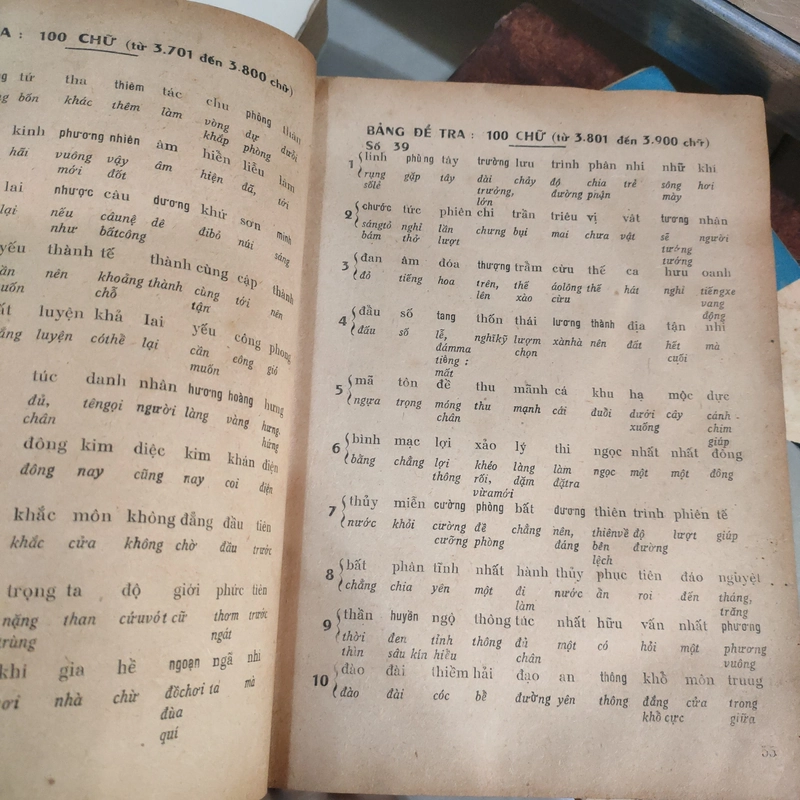 A : 100 CHỮ (từ 3.701 đến 3.800 chữ)
tứ tha thiêm tác chu phòng thân
bốn khác thêm làm vòng dự dưới
khắp phòng
kinh phương nhiên âm hiển liễu lâm
hãi vuông vậy âm hiện đã, tới
mới đốt
lai nhược câu dương khứ sơn minh
lại nếu câunệ dê đibỏ núi sáng
như bấtcông
yếu thành tế thành cùng cập thành
nên khoảng thành cùng tới nên
muốn chỗ tận
luyện khả lai yếu công phong
luyện cóthể lại cần công gió
muốn
túc danh nhân hương hoàng hưng
đủ, têngọi người làng vàng hưng
chân hứng
đông kim diệc kim khán điện
đông nay cũng nay coi điện
khắc môn không đẳng đầu tiên
khắc cửa không chờ đầu trước
trọng ta độ giới phức tiên
nặng than cứuvót cữ thơm trước
trùng ngát
khi gia hề ngoạn ngã nhi
hơi nhà chừ đồchơi ta mà
đùa
quí
BẢNG ĐỂ TRA : 100 CHỮ (từ 3.801 đến 3.900 chữ)
Số 39
1 linh phùng tây trường lưu trình phân nhi nhữ khí
rụng gặp tây dài chảy độ chia trẻ sông hơi
sốlẻ trưởng, đường phận mày
lớn
2 chước tức phiên chi trần triêu vị vát tương nhân
sángtỏ nghỉ lần chưng bụi mai chưa vật sẽ người
bám thở lượt tướng
tưởng
3 đan âm đóa thượng trầm cừu thế ca hưu oanh
đỏ tiếng hoa trên, thế áolông thế hát nghỉ tiếngxe
lên xào cừu vang
động
4 đẩu số tang thốn thái lương thành địa tận nhi
đấu số lễ, nghĩkỹ lượm xànhà nên đất hết mà
đámma chọn cuối
tiêng :
mất
5 mã tôn đề thu mãnh cá khu hạ mộc dực
ngựa trọng móng thu mạnh cái đuổi dưới cây cánh -
chân xuống chim
giúp
6 bình mạc lợi xảo lý thi ngọc nhất nhất đông
bằng chẳng lợi khéo làng làm ngọc một một đông
thông rối, dặm đặtra
vừamới
7 thủy miễn cường phòng bất đương thiên trình phiên tế
nước khỏi cường đề chẳng nên, thiênvề độ lượt giúp
cưỡng phòng đáng bên đường
lệch
8 bất phân tĩnh nhất hành thủy phục tiên đáo nguyệt
chẳng chia yên một đi nước ẩn roi đến tháng,
làm trăng
9 thần huyền ngộ thông túc nhất hữu vấn nhất phương
thời đen tỉnh thông đủ một có hỏi một phương
thìn sâu kín hiểu chân vuông
10 đào đài thiềm hải đạo an thông khổ môn trung
đào đài cóc bể đường yên thông đắng cửa trong
khổ cực giữa
55